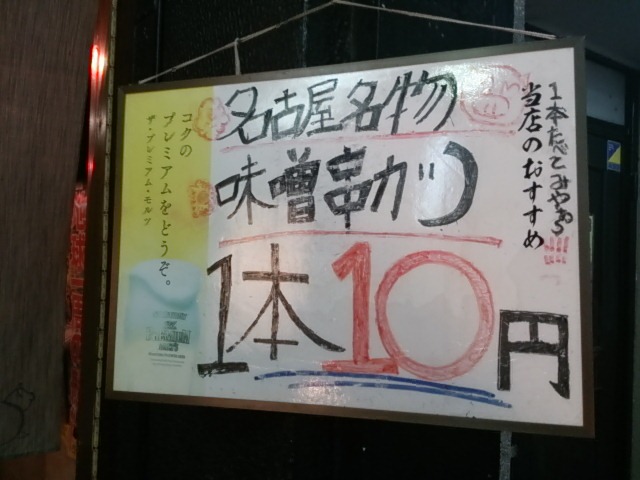 名古屋名物
味噌串カツ
1本10円
1本たべてみやぁち!!!
当店のおすすめ
コクの
プレミアムをどうぞ。
ザ・プレミアム・モルツ